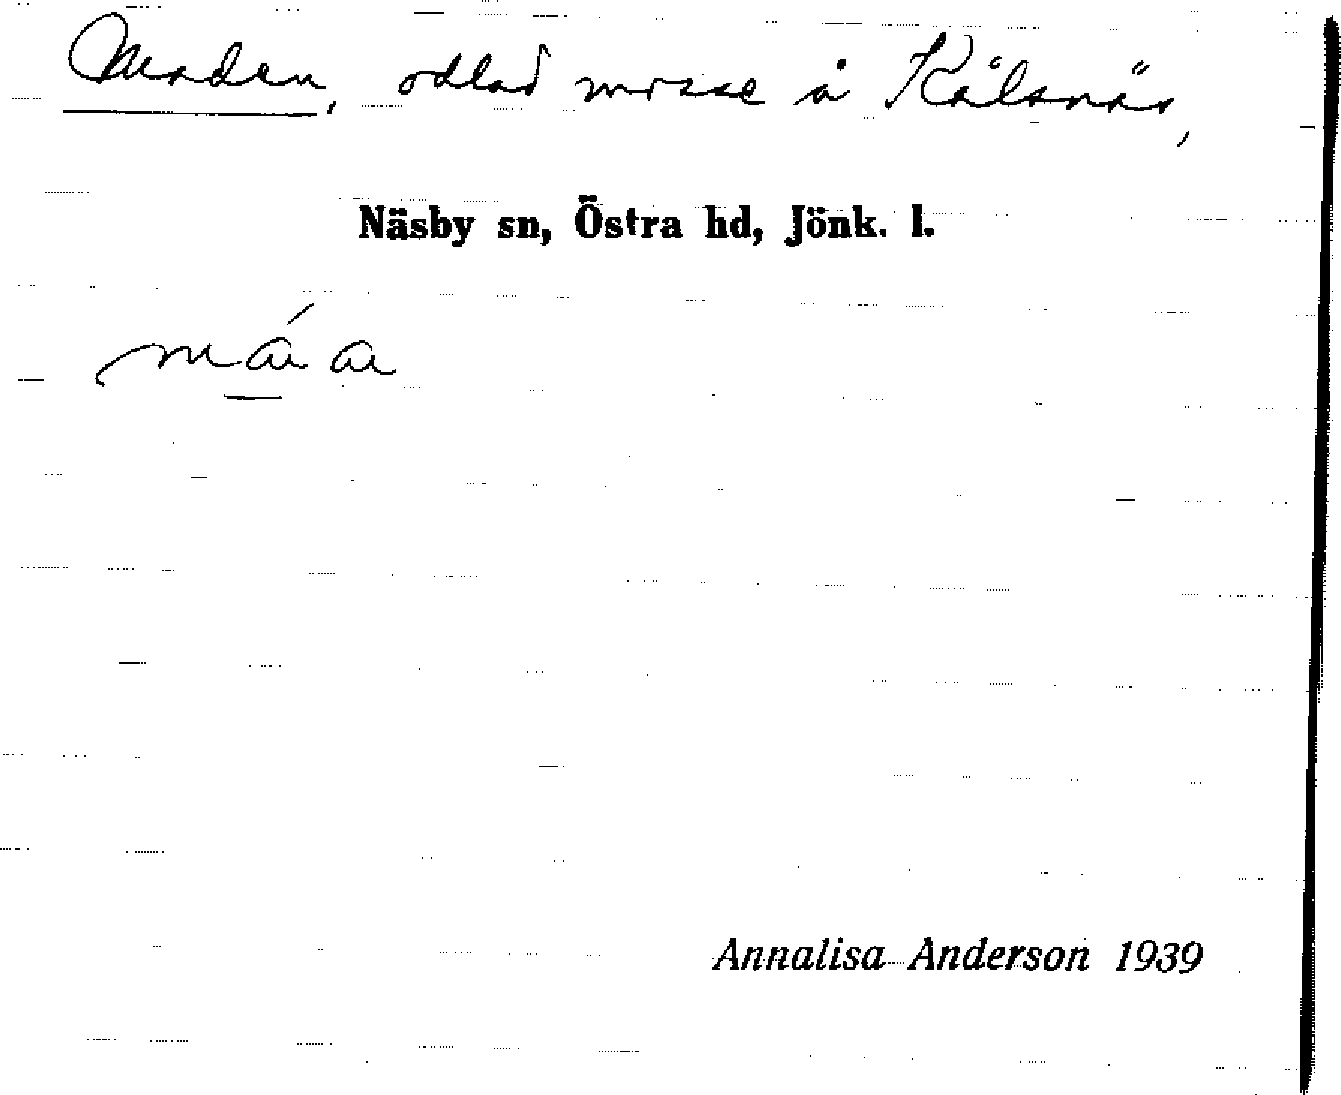 Maden, odlad mosse å Kålsnäs,
Näsby sn, Östra hd, Jönk. l.
má a
Annalisa Anderson 1939